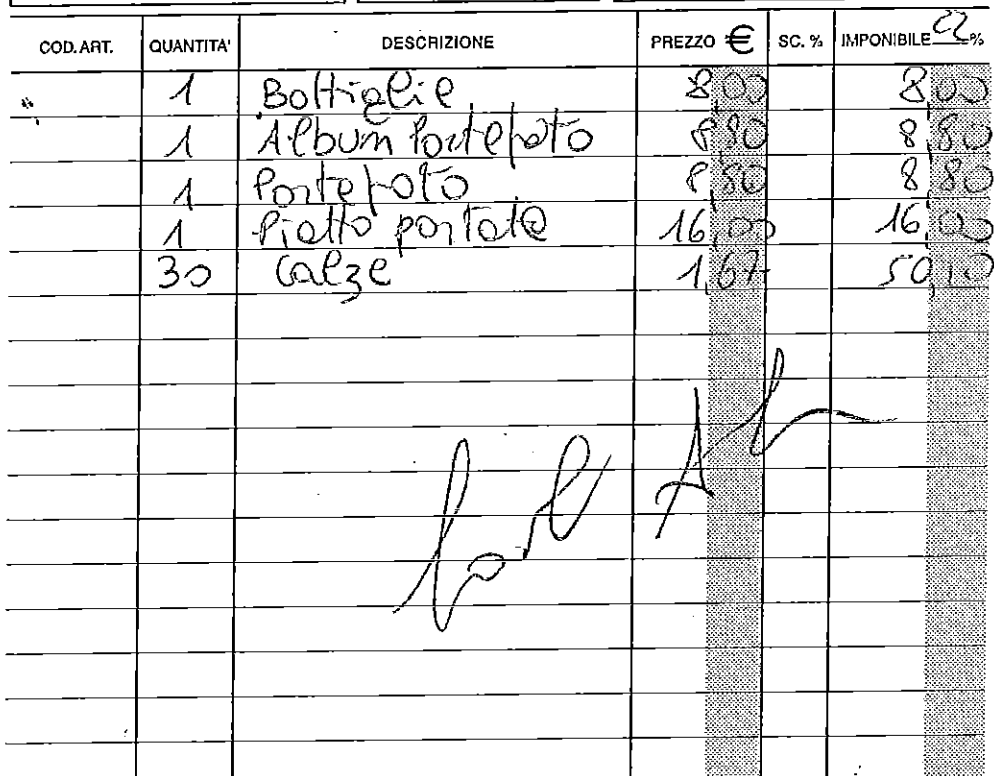 COD. ART. QUANTITA' DESCRIZIONE PREZZO € SC. % IMPONIBILE 22 %
1 Bottiglie 8,00 8,00
1 Album Portafoto 8,80 8,80
1 Portafoto 8,80 8,80
1 Piatto portata 16,00 16,00
30 Calze 1,67 50,10